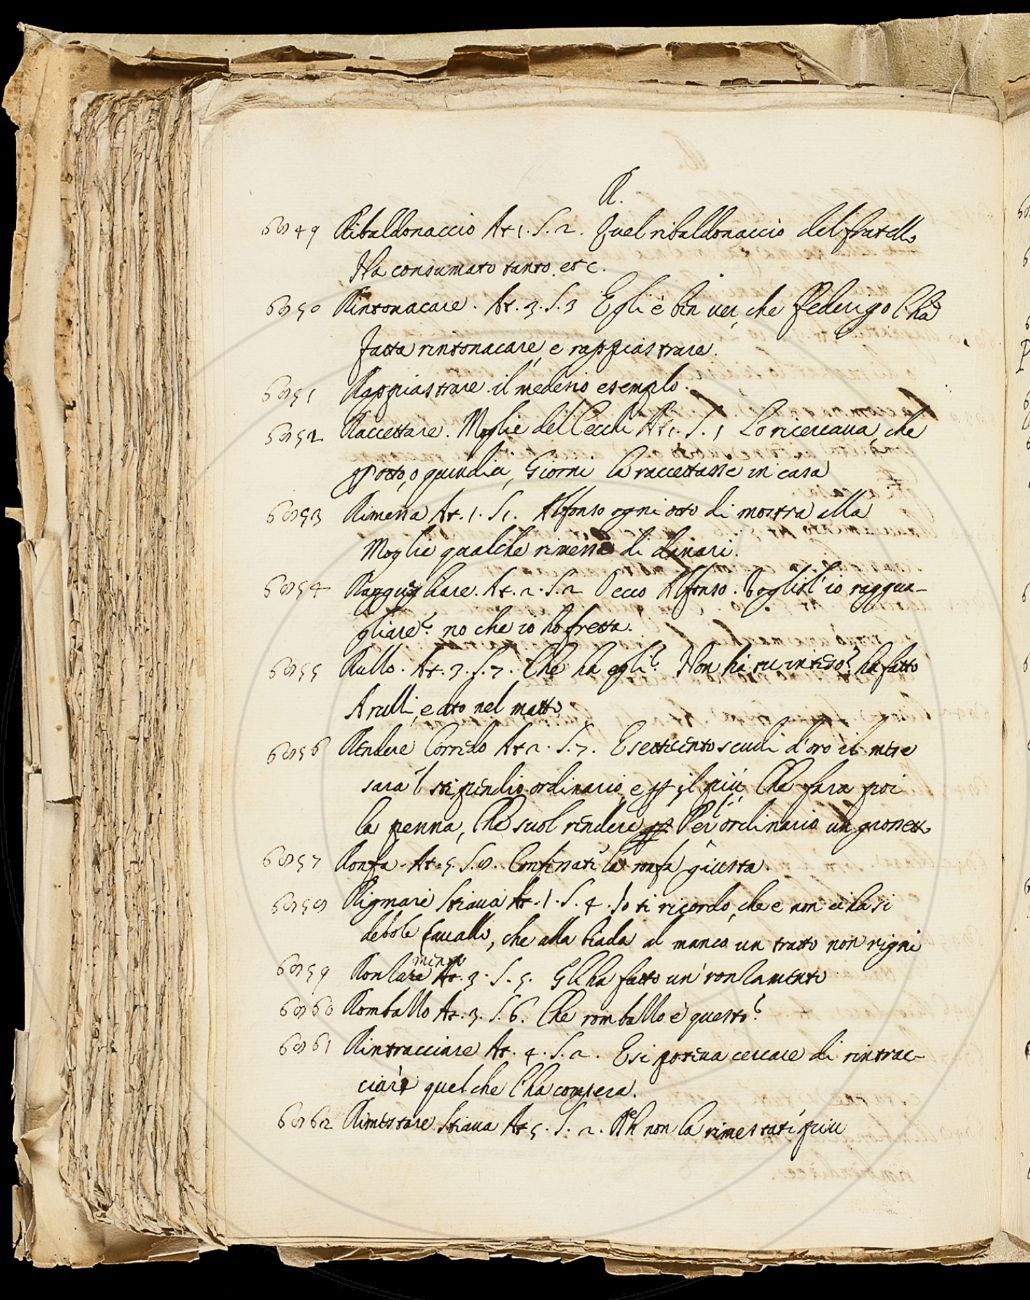 R.
6849 Ribaldonaccio At 1. S. 2. Quel ribaldonaccio del fratello
Ha consumato tanto. etc.
6850 Rintonacare. At. 3. S. 3 Egli è ben ver, che Federigo l'ha
fatta rintonacare, e rappiastrare.
6851 Rappiastrare. il medesio esemplo.
6852 Raccettare. Moglie del Cecchi At 1. S. 1 Lo ricercava, che
otto, o quindici, Giorni la raccettasse in casa
6853 Rimessa At. 1. S 1. Alfonso ogni otto di mostra alla
Moglie qualche rimessa di danari.
6854 Ragguagliare. At. 2. S. 2 Pecco Alfonso. Vogliti io raggua-
gliare? no che io ho fretta.
6855 Rullo. At. 3. S. 7. Che ha egli? Non hai tu inteso? ha fatto
A rulli, e dato nel matto
6856 Rendere Corredo At 2. S. 7. E settecento scudi d'oro il mese
sara l stipendio ordinario e il più, Che fara poi
la penna, Che suol rendere Per ordinario un
6857 Ronfa. At. 5. S. 8. Confinati la ronfa giusta.
6858 Rignare Stiava At. 1. S. 4. Io ti ricordo, che e non ci ha si
debole cavallo, che alla biada al manco un tratto non rigni
6859 Ronzamento At. 3. S. 5. Gli ha fatto un ronzamento
6860 Rombazzo At. 3. S. 6. Che rombazzo è questo?
6861 Rintracciare At. 4. S. 2. E si poteva cercare di rintrac-
ciare quel che l'ha compera.
6862 Rimestare Stiava At 5. S. 2. Deh non la rimestati più